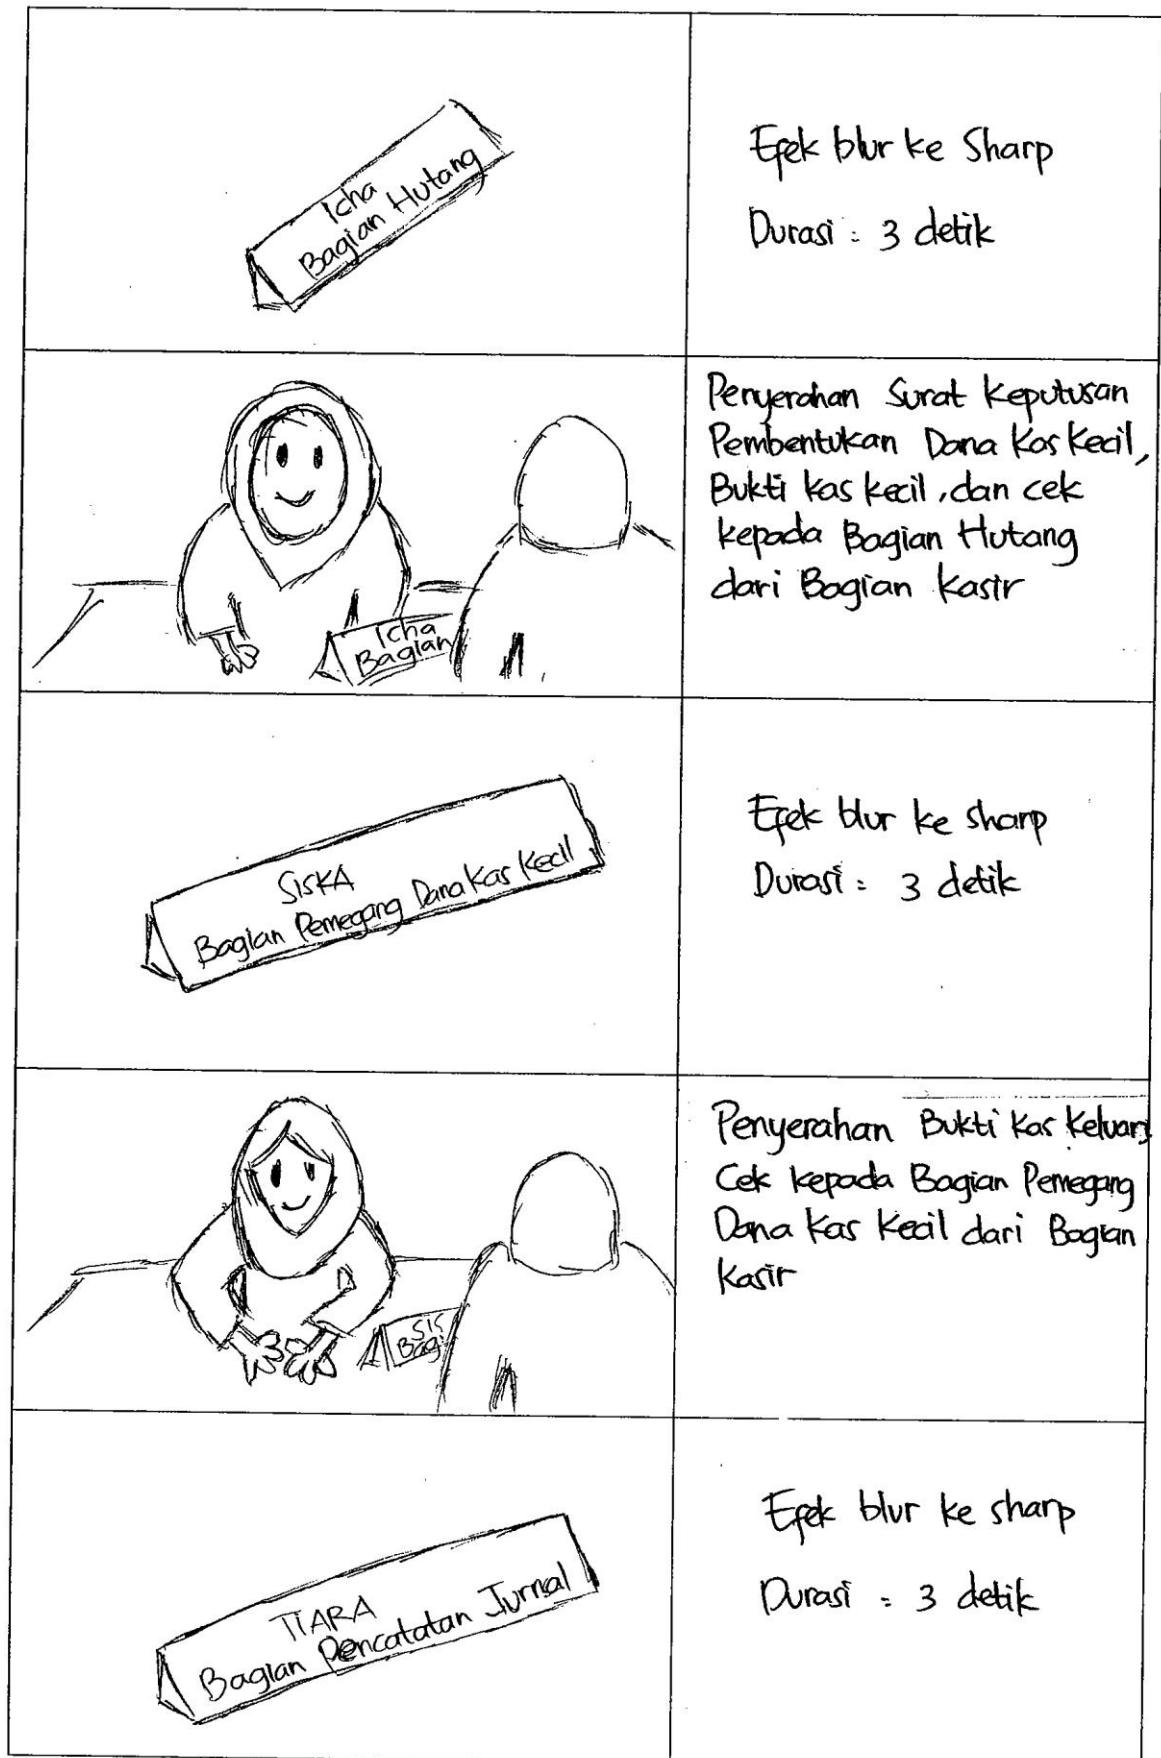 Icha
Bagian Hutang
Efek blur ke Sharp
Durasi : 3 detik
Penyerahan Surat Keputusan
Pembentukan Dana Kas Kecil,
Bukti kas kecil, dan cek
kepada Bagian Hutang
dari Bagian Kasir
Icha
Bagian
SISKA
Bagian Pemegang Dana Kas Kecil
Efek blur ke sharp
Durasi : 3 detik
Penyerahan Bukti Kas Keluar,
Cek kepada Bagian Pemegang
Dana Kas Kecil dari Bagian
Kasir
SIS
Bagi
TIARA
Bagian Pencatatan Jurnal
Efek blur ke sharp
Durasi : 3 detik